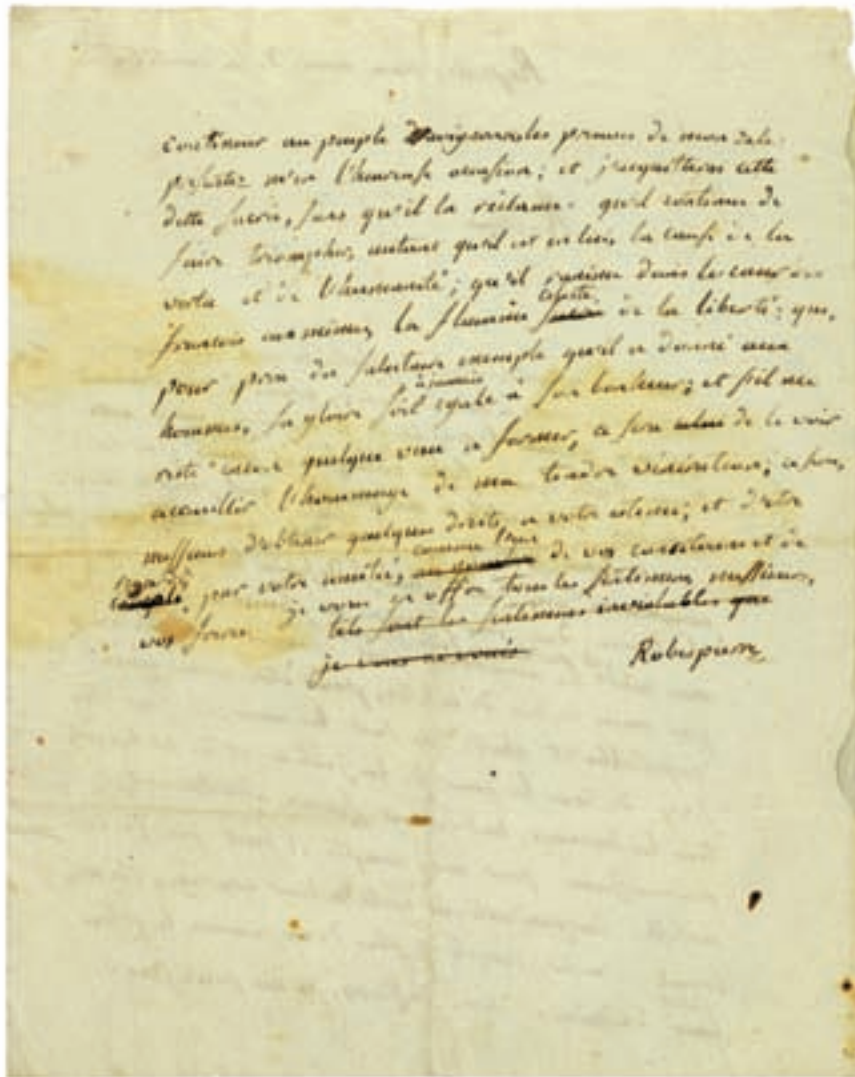 continuer au peuple avignonais les preuves de mon zele.
presentez m'en l'heureuse occasion; et j'acquitterai cette
dette sacrée, sans qu'il la réclame. qu'il continue de
faire triompher, autant qu'il est en lui, la cause de la
vertu et de l'humanité; qu'il ranime dans les cœurs des
françois la flamme céleste de la liberté; que,
pour prix du salutaire exemple qu'il a donné aux
hommes, sa gloire soit à jamais égale à son bonheur; et s'il me
reste encore quelque vœu à former, ce sera celui de le voir
accueillir l'hommage de ma tendre vénération; ce sera,
messieurs d'obtenir quelques droits à votre estime; et d'être
regardé, par votre amitié, comme l'un de vos concitoyens et de
vos freres. je vous offre tous les sentimens, messieurs,
tels sont les sentimens inviolables que
je vous ai voués
Robespierre